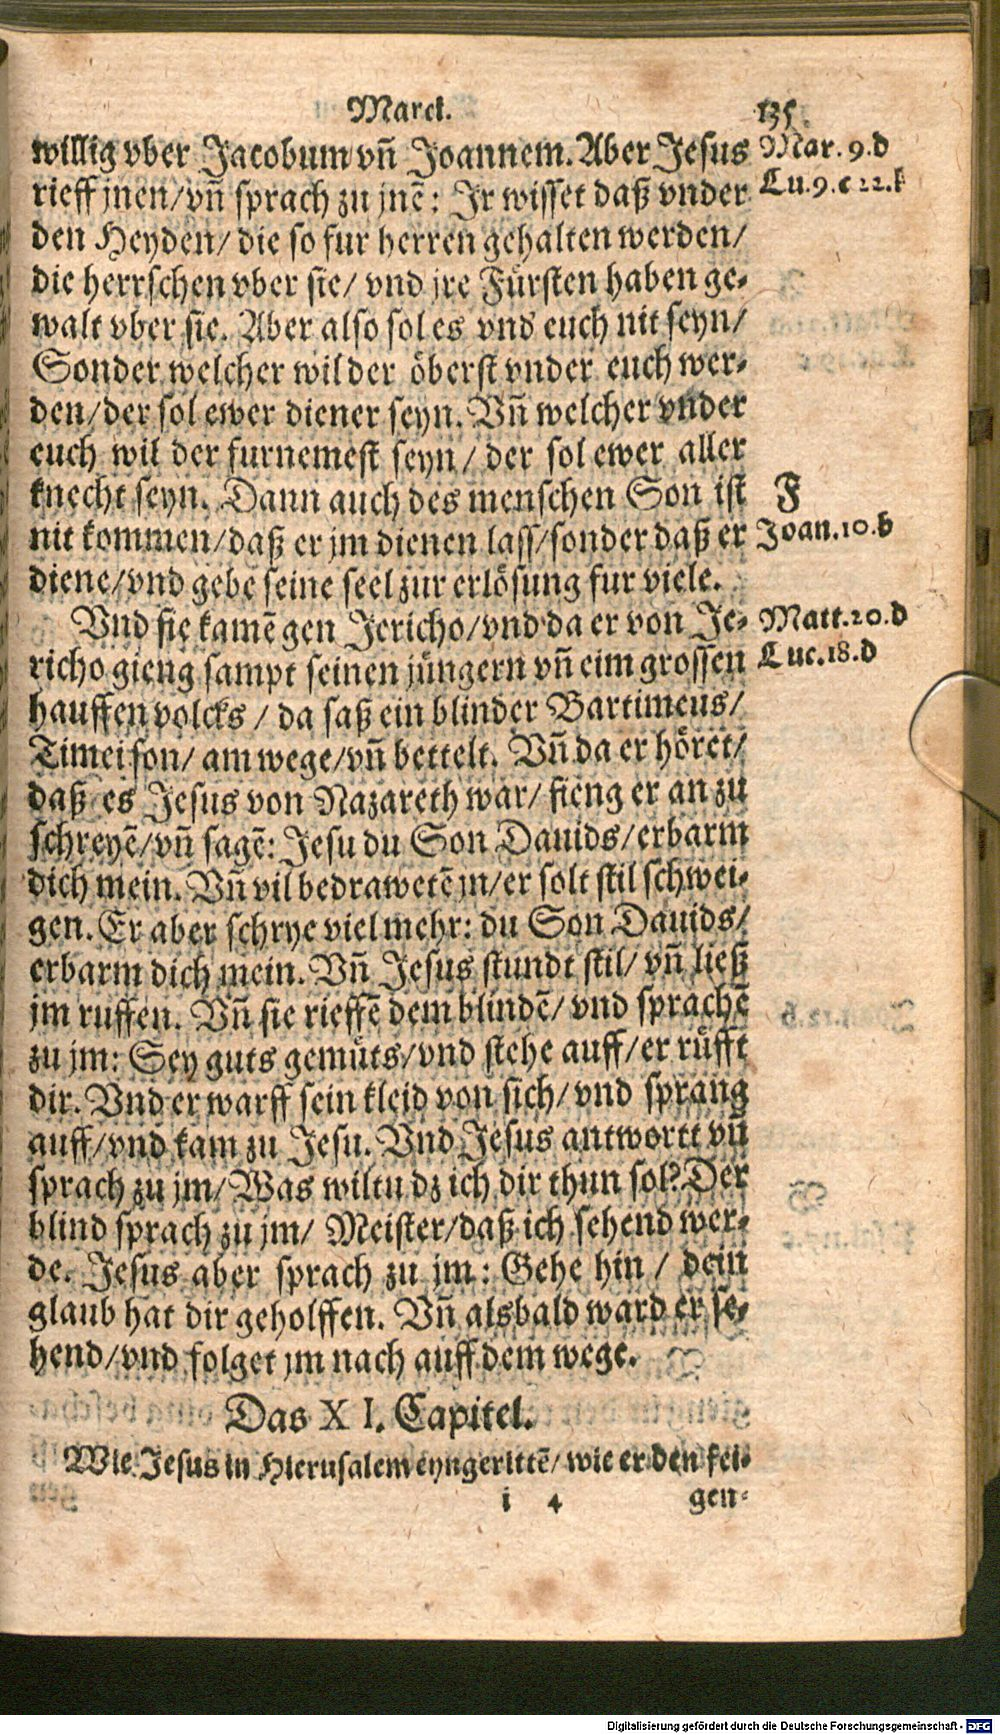 Marck.
135.
willig vber Jacobum vn̄ Joannem. Aber Jesus
Mar. 9.d
rieff jnen/vn̄ sprach zu jnē: Ir wisset daß vnder
Lu.9.e 22.
den Heyden/ die so fur herren gehalten werden/
die herrschen vber sie/ vnd jre Fürsten haben ge-
walt vber sie. Aber also sol es vnd euch nit seyn/
Sonder welcher wil der öberst vnder euch wer-
den/der sol ewer diener seyn. Vn̄ welcher vnder
euch wil der furnemest seyn/ der sol ewer aller
knecht seyn. Dann auch des menschen Son ist
F
nit kommen/daß er jm dienen lass/sonder daß er
Joan.10.b
diene/vnd gebe seine seel zur erlösung fur viele.
Vnd sie kamē gen Jericho/vnd da er von Je-
Matt.20.d
richo gieng sampt seinen jüngern vn̄ eim grossen
Luc.18.d
hauffen volcks / da saß ein blinder Bartimeus/
Timei son/ am wege/vn̄ bettelt. Vn̄ da er höret/
daß es Jesus von Nazareth war/ fieng er an zu
schreyē/vn̄ sagē: Jesu du Son Dauids/erbarm
dich mein. Vn̄ vil bedrawetē jn/er solt stil schwei-
gen. Er aber schrye viel mehr: du Son Dauids/
erbarm dich mein. Vn̄ Jesus stundt stil/ vn̄ ließ
jm ruffen. Vn̄ sie rieffē dem blindē/ vnd sprachē
zu jm: Sey guts gemüts/vnd stehe auff/er rüfft
dir. Vnd er warff sein kleid von sich/ vnd sprang
auff/vnd kam zu Jesu. Vnd Jesus antwortt vn̄
sprach zu jm/ Was wiltu dz ich dir thun sol? Der
blind sprach zu jm/ Meister/daß ich sehend wer-
de. Jesus aber sprach zu jm: Gehe hin / dein
glaub hat dir geholffen. Vn̄ alsbald ward er se-
hend/vnd folget jm nach auff dem wege.
Das X I. Capitel.
Wie Jesus in Hierusalem eyngerittē/ wie er den fei-
i 4 gen-
Digitalisierung gefördert durch die Deutsche Forschungsgemeinschaft - DFG